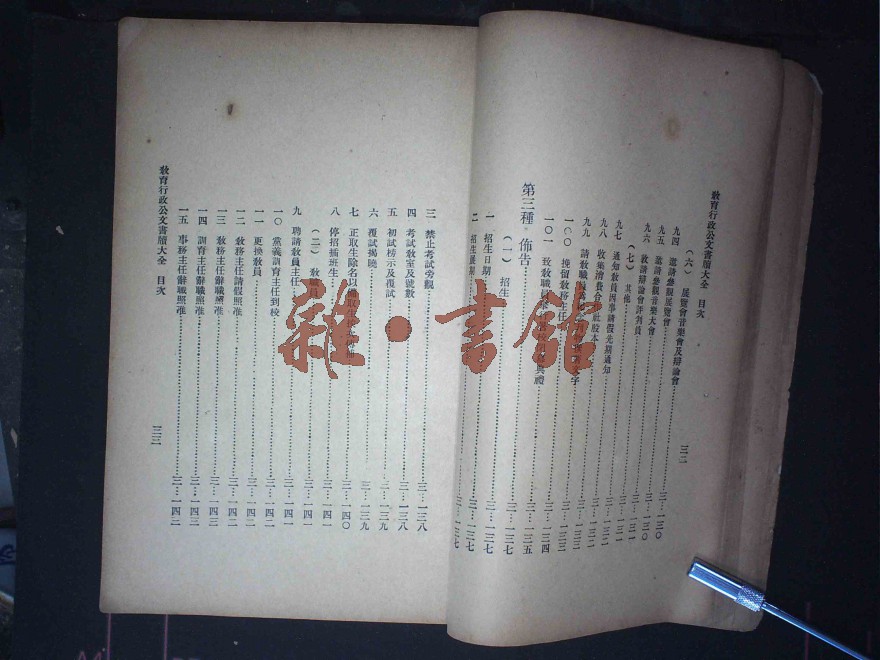 教育行政公文書牘大全 目次
二二
(六) 展覽會音樂會及辯論會
九四 邀請參觀展覽會……三…一三〇
九五 邀請參觀音樂大會……三…一三〇
九六 敦請辯論會評判員……三…一三〇
(七) 其他……三…一三一
九七 通知教員因事請假先期通知……三…一三一
九八 收集消費合作社股本……三…一三二
九九 請教職員
一〇〇 挽留教務主任……三…一三三
一〇一 致教職員……典禮……三…一三四
第三種 佈告……三…一三五
(一) 招生……三…一三七
一 招生日期……三…一三七
二 招生展期……三…一三七
三 禁止考試旁觀……三…一三八
四 考試教室及號數……三…一三八
五 初試榜示及覆試……三…一三九
六 覆試揭曉……三…一三九
七 正取生除名以備取……三…一四〇
八 停招插班生……三…一四一
(二) 教職員……三…一四一
九 聘請教員主任……三…一四一
一〇 黨義訓育主任到校……三…一四二
一一 更換教員……三…一四二
一二 教務主任請假照准……三…一四二
一三 教務主任辭職照准……三…一四二
一四 訓育主任辭職照准……三…一四三
一五 事務主任辭職照准……三…一四二
教育行政公文書牘大全 目次
二三
雜·書館